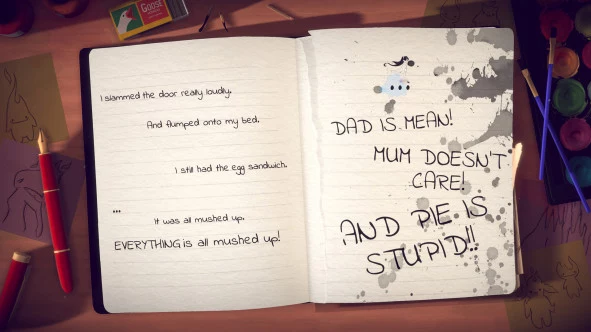 GOOSE
I slammed the door really loudly.
And flumped onto my bed.
I still had the egg sandwich.
...
It was all mushed up.
EVERYTHING is all mushed up!
DAD IS MEAN!
MUM DOESN'T
CARE!
AND PIE IS
STUPID!!